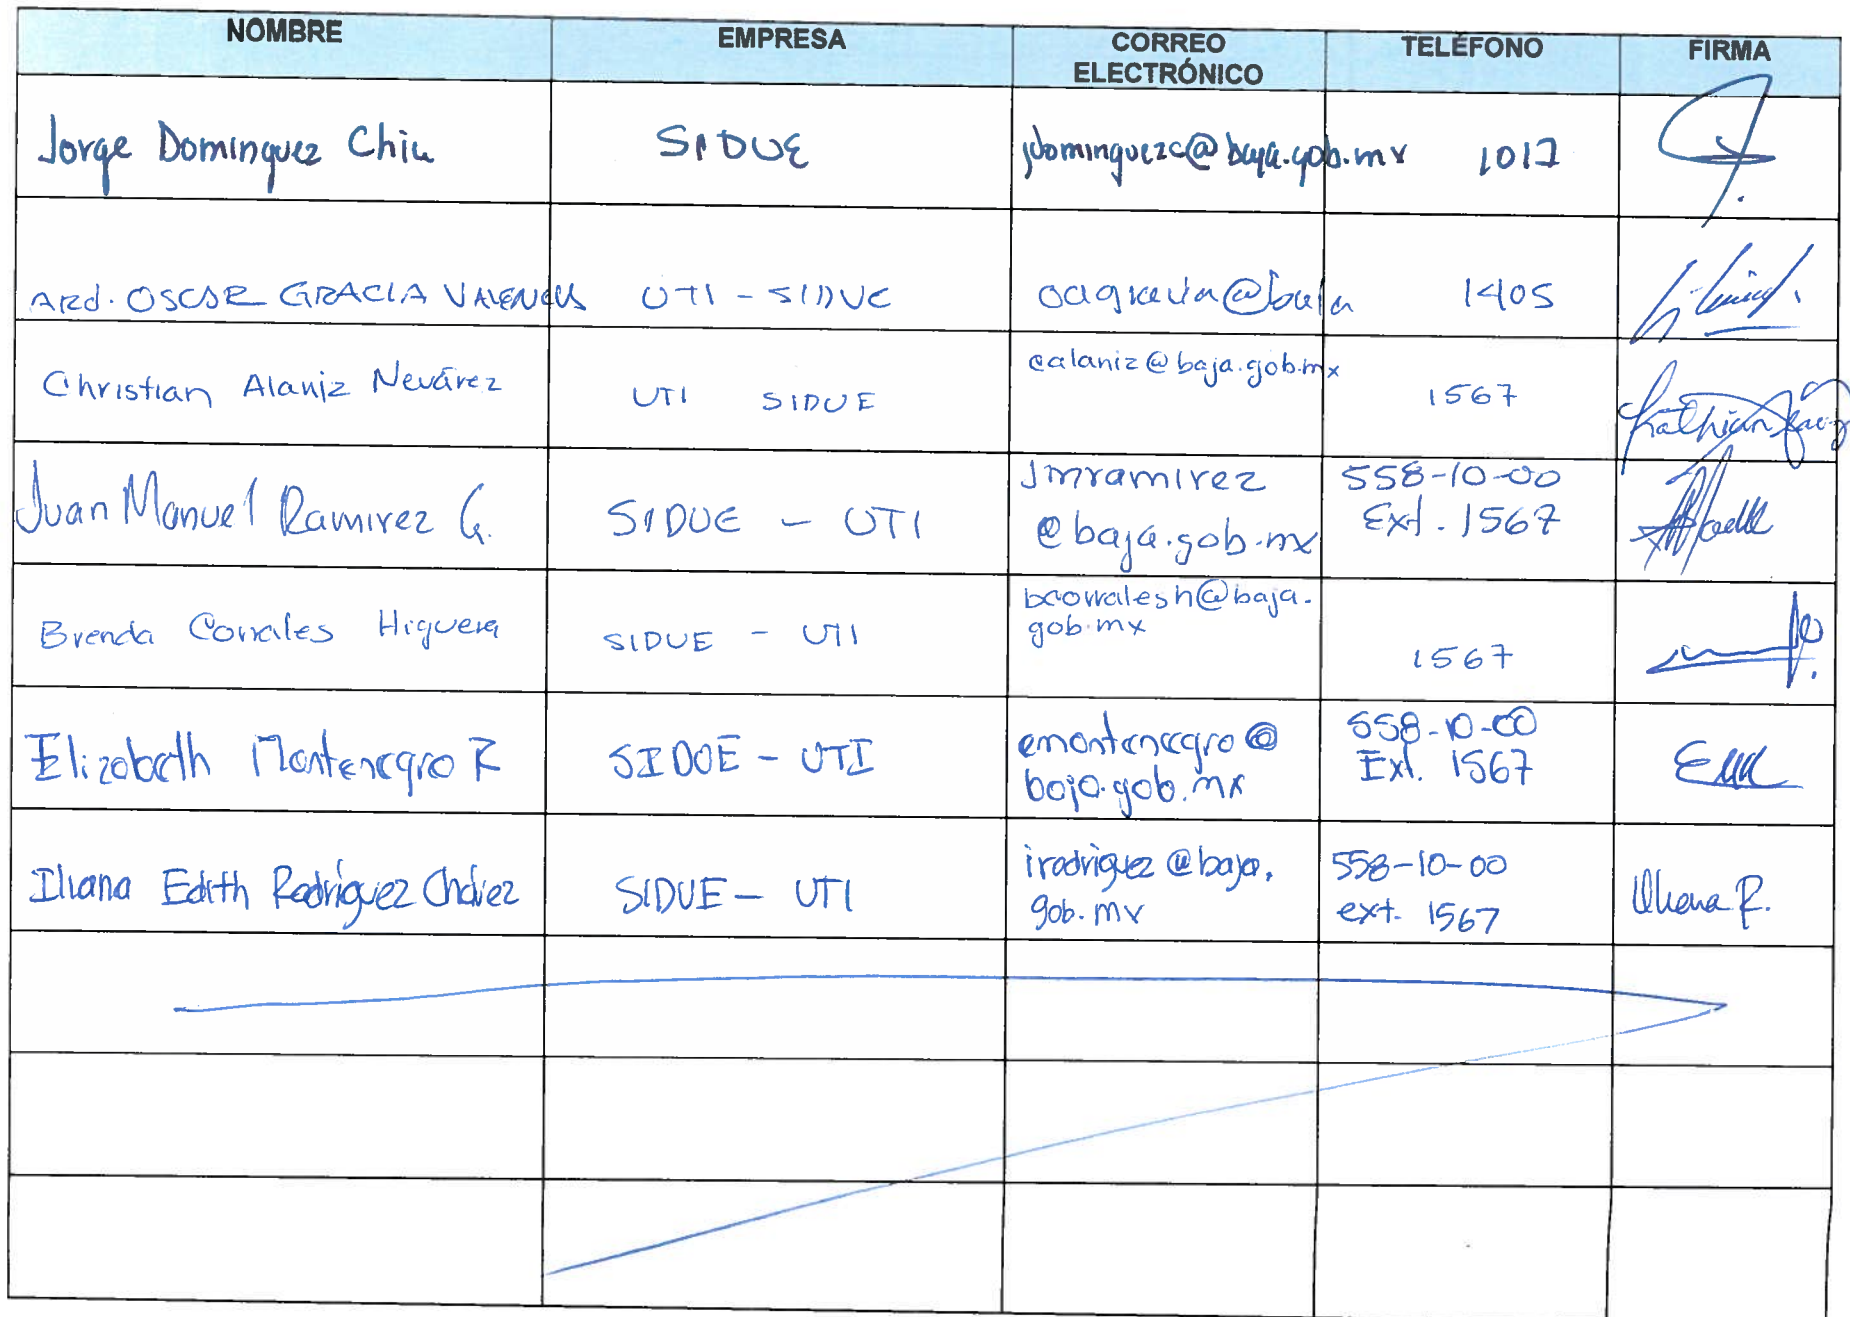 NOMBRE EMPRESA CORREO ELECTRÓNICO TELÉFONO FIRMA
Jorge Dominguez Chiu SIDUE jdominguezc@baja.gob.mx 1017
ARQ. OSCAR GRACIA VALENCIA UTI - SIDUE oagracia@baja 1405
Christian Alaniz Nevárez UTI SIDUE calaniz@baja.gob.mx 1567
Juan Manuel Ramirez G. SIDUE - UTI jmramirez 558-10-00
@baja.gob.mx Ext. 1567
Brenda Corrales Higuera SIDUE - UTI bcorralesh@baja.
gob.mx 1567
Elizabeth Montenegro R SIDUE - UTI emontenegro@ 558-10-00
baja.gob.mx Ext. 1567
Iliana Edith Rodríguez Chávez SIDUE - UTI irodriguez@baja. 558-10-00 Iliana R.
gob.mx ext. 1567